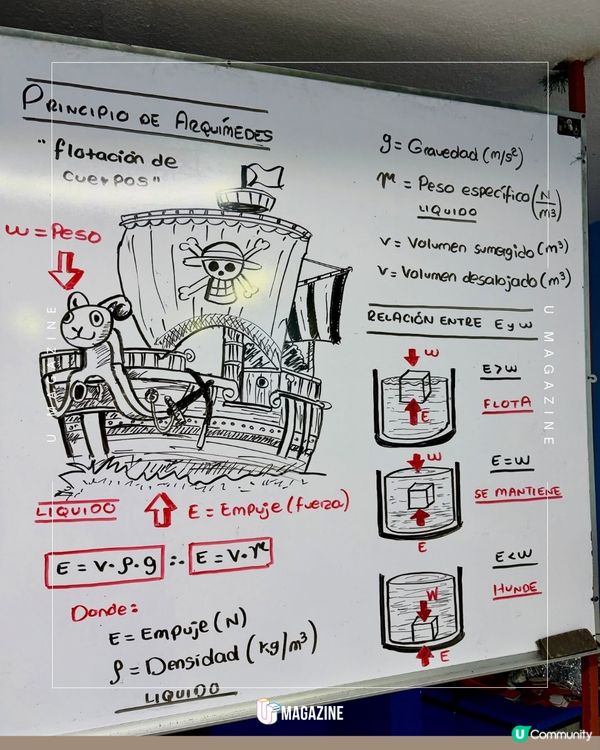 PRINCIPIO DE ARQUÍMEDES
"flotación de
cuerpos"
w = Peso
LIQUIDO
E = Empuje (fuerza)
E = V · ρ · g ∴ E = V · γ
Donde:
E = Empuje (N)
ρ = Densidad (kg/m³)
LIQUIDO
g = Gravedad (m/s²)
γ = Peso específico (N/m³)
LIQUIDO
v = Volumen sumergido (m³)
v = Volumen desalojado (m³)
RELACIÓN ENTRE E y W
W
E
E > W
FLOTA
W
E
E = W
SE MANTIENE
W
E
E < W
HUNDE
U MAGAZINE
U MAGAZINE
U MAGAZINE
U Community